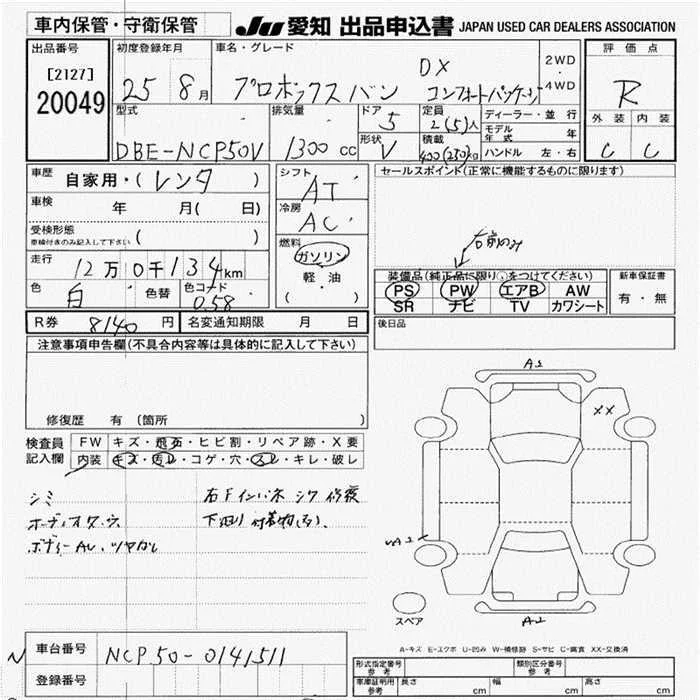 車内保管・守衛保管
JU 愛知 出品申込書 JAPAN USED CAR DEALERS ASSOCIATION
出品番号
[2127]
20049
初度登録年月
25 8月
車名・グレード
プロボックスバン
DX
コンフォートパッケージ
2WD
・
4WD
評価点
R
外装 内装
C C
型式
DBE-NCP50V
排気量
1300 CC
ドア
5
形状
V
定員
2(5)人
積載
400(250)kg
ディーラー・並行
モデル年式 年
ハンドル 左・右
車歴 自家用・(レンタ )
車検 年 月( 日)
受検形態
車検付きのみ記入して下さい ( )
走行 12万0千134km
色 白 色替 色コード 058
シフト AT
冷房 AC
燃料
ガソリン
軽・油
( )
セールスポイント(正常に機能するものに限ります)
右前のみ
装備品(純正品に限り○をつけてください)
PS PW エアB AW
SR ナビ TV カワシート
新車保証書
有・無
R券 8140円 名変通知期限 月 日
後日品
注意事項申告欄(不具合内容等は具体的に記入して下さい)
修復歴 有 (箇所 )
検査員記入欄
FW キズ・飛石・ヒビ割・リペア跡・X要
内装 キズ・汚レ・コゲ・穴・スレ・キレ・破レ
シミ
右Fインパネ シワ 修復
下廻り 付着物(有)
A2
XX
A2
A2
スペア
A-キズ E-エクボ U-凹み W-補修跡 S-サビ C-腐食 XX-交換済
車台番号 NCP50-0141511
登録番号
型式指定番号 参考
類別区分番号 参考
車庫証明用 参考 長さ cm 幅 cm 高さ cm